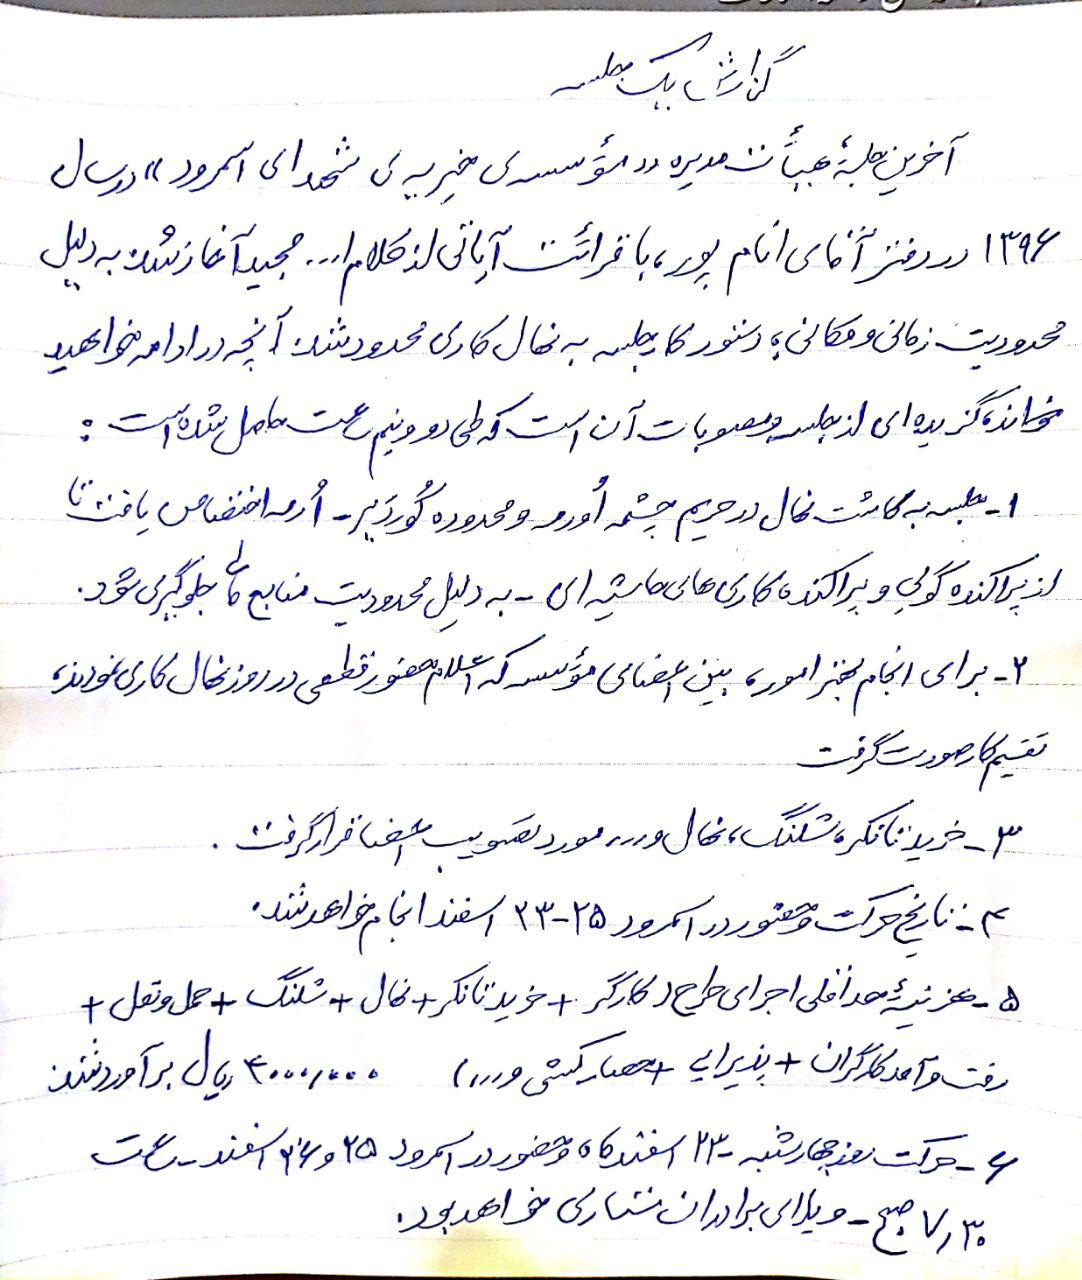 گزارش یک جلسه
آخرین جلسهٔ هیأت مدیره «مؤسسه‌ی خیریه‌ی شهدای اسمرود» در سال
۱۳۹۶ در دفتر آقای انام پور، با قرائت آیاتی از کلام ا... مجید آغاز شد. به دلیل
محدودیت زمانی و مکانی، دستور کار جلسه به نهال کاری محدود شد. آنچه در ادامه خواهید
خواند، گزیده‌ای از جلسه و مصوبات آن است که طی دو و نیم ساعت حاصل شده است:
۱- جلسه به کاشت نهال در حریم چشمه اُورمه و محدوده گُوردَیر- اُرمه اختصاص یافت تا
از پراکنده گویی و پراکنده کاری های حاشیه ای - به دلیل محدودیت منابع مالی جلوگیری شود.
۲- برای انجام بهتر امور، بین اعضای مؤسسه که اعلام حضور قطعی در روز نهال کاری نمودند،
تقسیم کار صورت گرفت
۳- خرید تانکر، شلنگ، نهال و... مورد تصویب اعضا قرار گرفت.
۴- تاریخ حرکت و حضور در اسمرود ۲۵-۲۳ اسفند انجام خواهد شد.
۵- هزینهٔ حداقلی اجرای طرح (کارگر + خرید تانکر + نهال + شلنگ + حمل و نقل +
رفت و آمد کارگران + پذیرایی + حصار کشی و...) ۴۰۰۰۰/۰۰۰ ریال برآورد شد.
۶- حرکت روز چهارشنبه ۲۳- اسفند ماه و حضور در اسمرود ۲۵ و ۲۴ اسفند - ساعت
۷/۳۰ صبح - ویلای برادران ستاری خواهد بود.